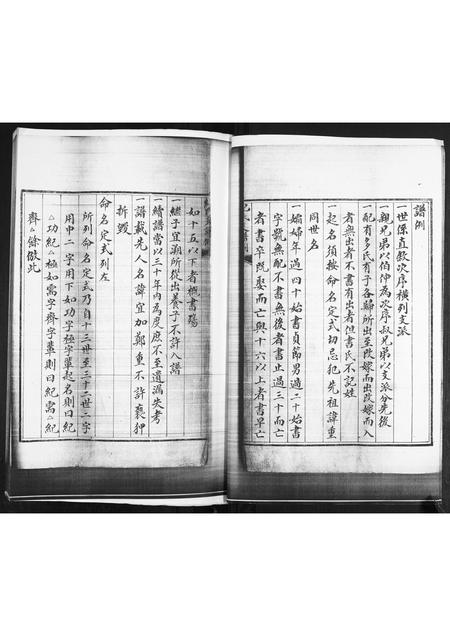 譜例
一世係直叙次序橫列支派
一親兄弟以伯仲為次序叔兄弟以支派分先後
一配有多氏有子各歸所出至改嫁而出改嫁而入
者無出者不書有出者但書氏不記姓
一起名須按命名定式切忌犯先祖諱重
同世名
一孀婦年過四十始書貞節男過二十始書
字號無配不書無後者書止過三十而亡
者書卒既娶而亡與十六以上者書早亡
如十五以下者概書殤
一繼子宜溯所從出養子不許入譜
一續譜當以三十年內為度庶不至遺漏失考
一譜載先人名諱宜加鄭重不許褻狎
拆毀
命名定式列左
所列命名定式乃自十三世至三十二世二字
用中二字用下如功字極字輩起名則曰紀
△功紀△極如需字齊字輩則曰紀需△紀
齊△餘倣此